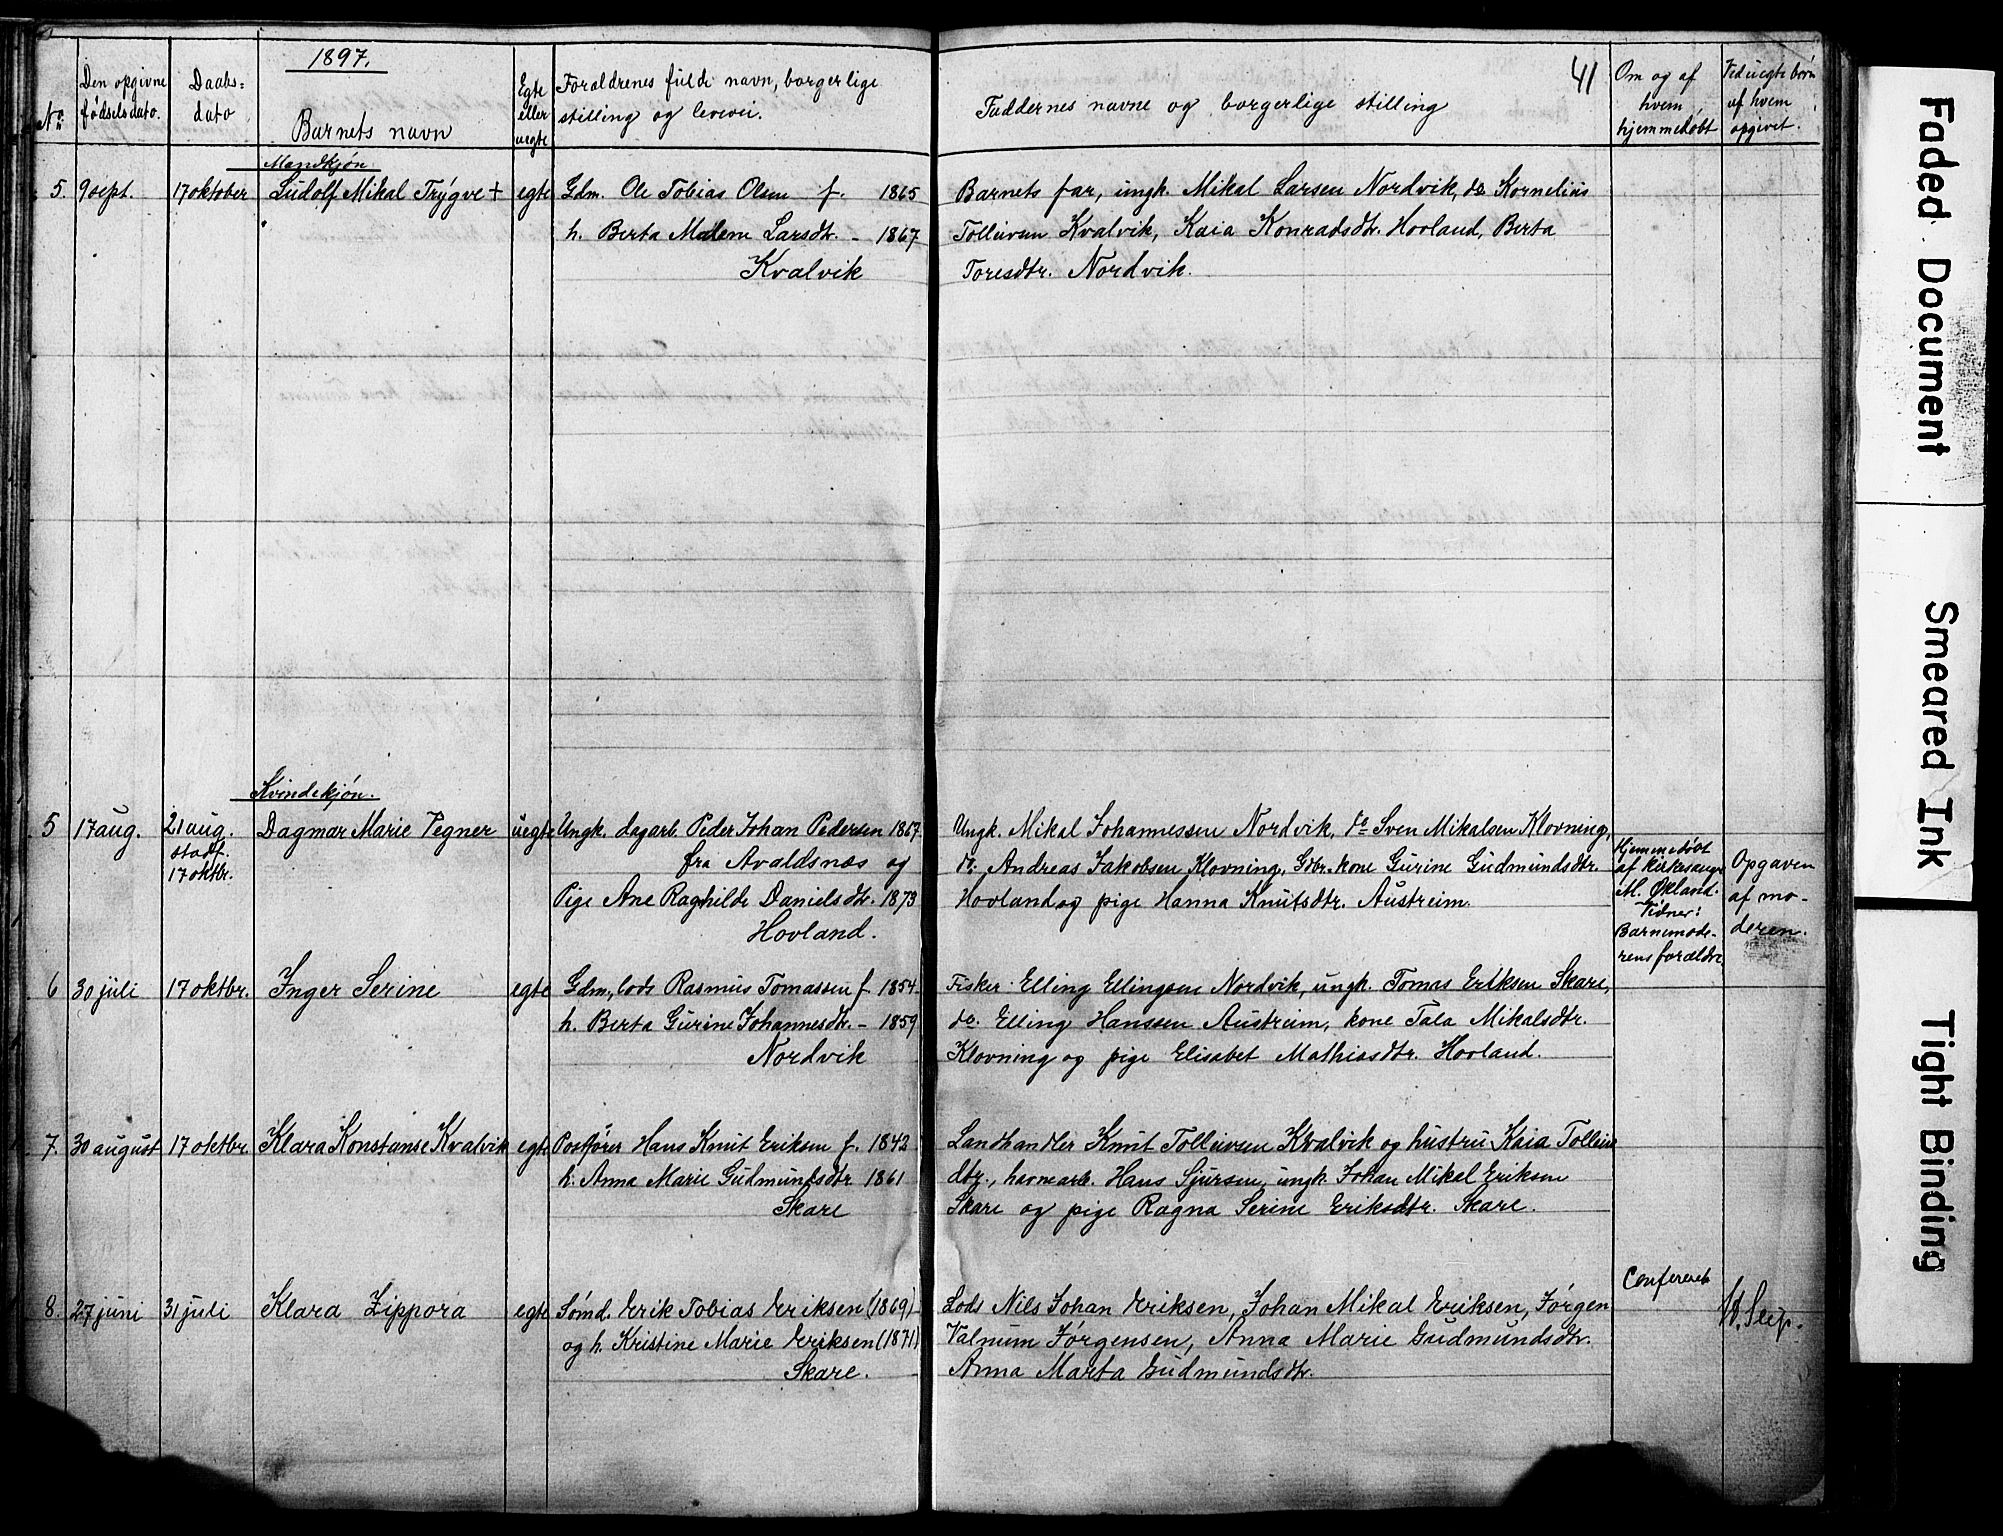 1897.
41
No.
Den opgivne fødselsdato.
Daabs-dato
Barnets navn
Egte eller uegte
Forældrenes fulde navn, borgerlige stilling og levevei.
Faddernes navne og borgerlige stilling
Om og af hvem hjemmedøbt
Ved uegte børn af hvem opgivet.
Mandkjøn.
5. 9 sept. 17 oktober Ludolf Mikal Trygve + egte Gdm. Ole Tobias Olsen f. 1865 Barnets far, ungk. Mikal Larsen Nordvik, do Kornelius
h. Berta Malene Larsdtr. - 1867 Tollevsen Kvalvik, Kaia Konradsdtr. Hovland, Berta
Kvalvik Toresdtr. Nordvik.
Kvindekjøn.
5 17 aug. 21 aug. Dagmar Marie Vegner uegte Ungk. dagarb. Peder Johan Pedersen 1867 Ungk. Mikal Johannessen Nordvik, do Sven Mikalsen Klovning,
stadf. 17 oktbr. fra Avaldsnæs og do. Andreas Jakobsen Klovning, Gdbr. kone Gurine Gudmundsdtr.
Pige Ane Raghilde Danielsdtr. 1873 Hovland og pige Hanna Knutsdtr. Austreim.
Hovland.
Hjemmedøbt
af kirkesanger
M. Økland.
Vidner:
Barnemode-
rens forældre.
Opgaven
af mo-
deren.
6 30 juli 17 oktbr. Inger Serine egte Gdm., lods Rasmus Tomassen f. 1854 Fisker Elling Ellingsen Nordvik, ungk. Tomas Eriksen Skare,
h. Berta Gurine Johannesdtr. - 1859 do. Elling Hanssen Austreim, kone Tala Mikalsdtr.
Nordvik Klovning og pige Elisabet Mathiasdtr. Hovland.
7. 30 august 17 oktbr. Klara Konstanse Kvalvik egte Postfører Hans Knut Eriksen f. 1842 Landhandler Knut Tollevsen Kvalvik og hustru Kaia Tollevs
h. Anna Marie Gudmundsdtr 1861 dtr., havnearb. Hans Sjursen, ungk. Johan Mikal Eriksen
Skare Skare og pige Ragna Serine Eriksdtr. Skare.
8. 27 juni 31 juli Klara Zippora egte Sømd. Erik Tobias Eriksen (1869) Lods Nils Johan Eriksen, Johan Mikal Eriksen, Jørgen
og h. Kristine Marie Eriksen (1871) Valnum Jørgensen, Anna Marie Gudmundsdtr.
Skare. Anna Marta Gudmundsdtr.
Confereret
Seip.
Faded Document
Smeared Ink
Tight Binding